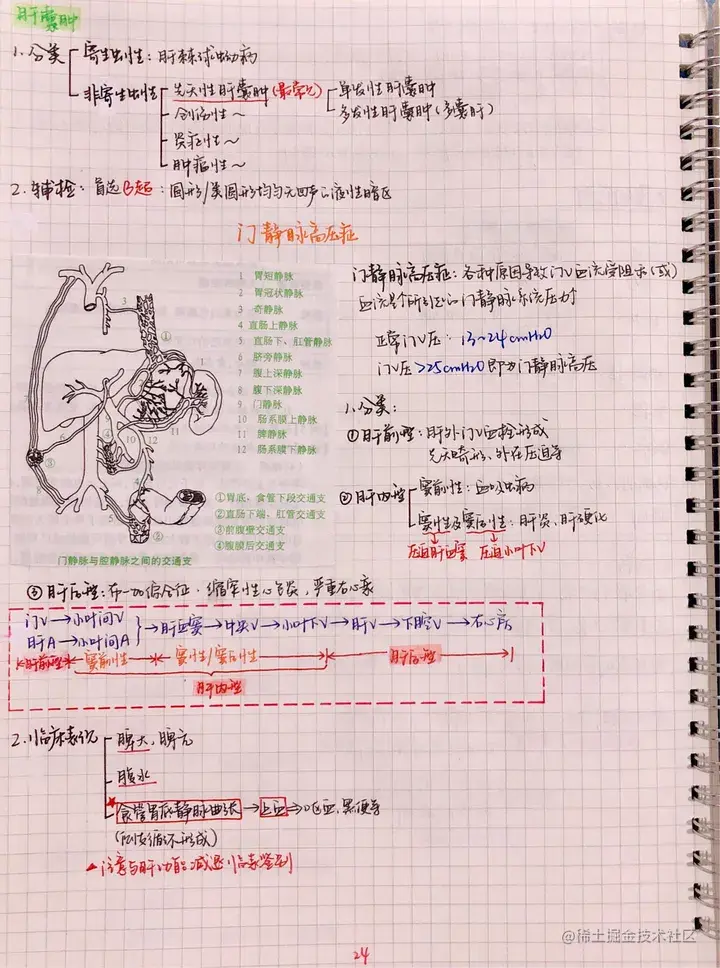 肝囊肿
1.分类 寄生虫性:肝棘球蚴病
非寄生虫性 先天性肝囊肿(最常见) 单发性肝囊肿
多发性肝囊肿(多囊肝)
创伤性~
炎症性~
肿瘤性~
2.辅检:首选B超:圆形/类圆形均匀无回声的液性暗区
门静脉高压症
1 胃短静脉
2 胃冠状静脉
3 奇静脉
4 直肠上静脉
5 直肠下、肛管静脉
6 脐旁静脉
7 腹上深静脉
8 腹下深静脉
9 门静脉
10 肠系膜上静脉
11 脾静脉
12 肠系膜下静脉
①胃底、食管下段交通支
②直肠下端、肛管交通支
③前腹壁交通支
④腹膜后交通支
门静脉与腔静脉之间的交通支
门静脉高压症:各种原因导致门V血流受阻和(或)
血流量↑所引起的门静脉系统压力↑
正常门V压:13~24cmH2O
门V压>25cmH2O即为门静脉高压
1.分类:
①肝前型:肝外门V血栓形成
先天畸形、外在压迫等
②肝内型 窦前性:血吸虫病
窦性及窦后性:肝炎、肝硬化
压迫肝血窦 压迫小叶下V
③肝后型:布-加综合征、缩窄性心包炎,严重右心衰
门V→小叶间V
肝A→小叶间A }→肝血窦→中央V→小叶下V→肝V→下腔V→右心房
肝前型 窦前性 窦性/窦后性 肝后型
肝内型
2.临床表现 脾大,脾亢
腹水
★食管胃底静脉曲张→出血→呕血,黑便等
(侧支循环形成)
▲注意与肝功能减退临表鉴别
24
@稀土掘金技术社区